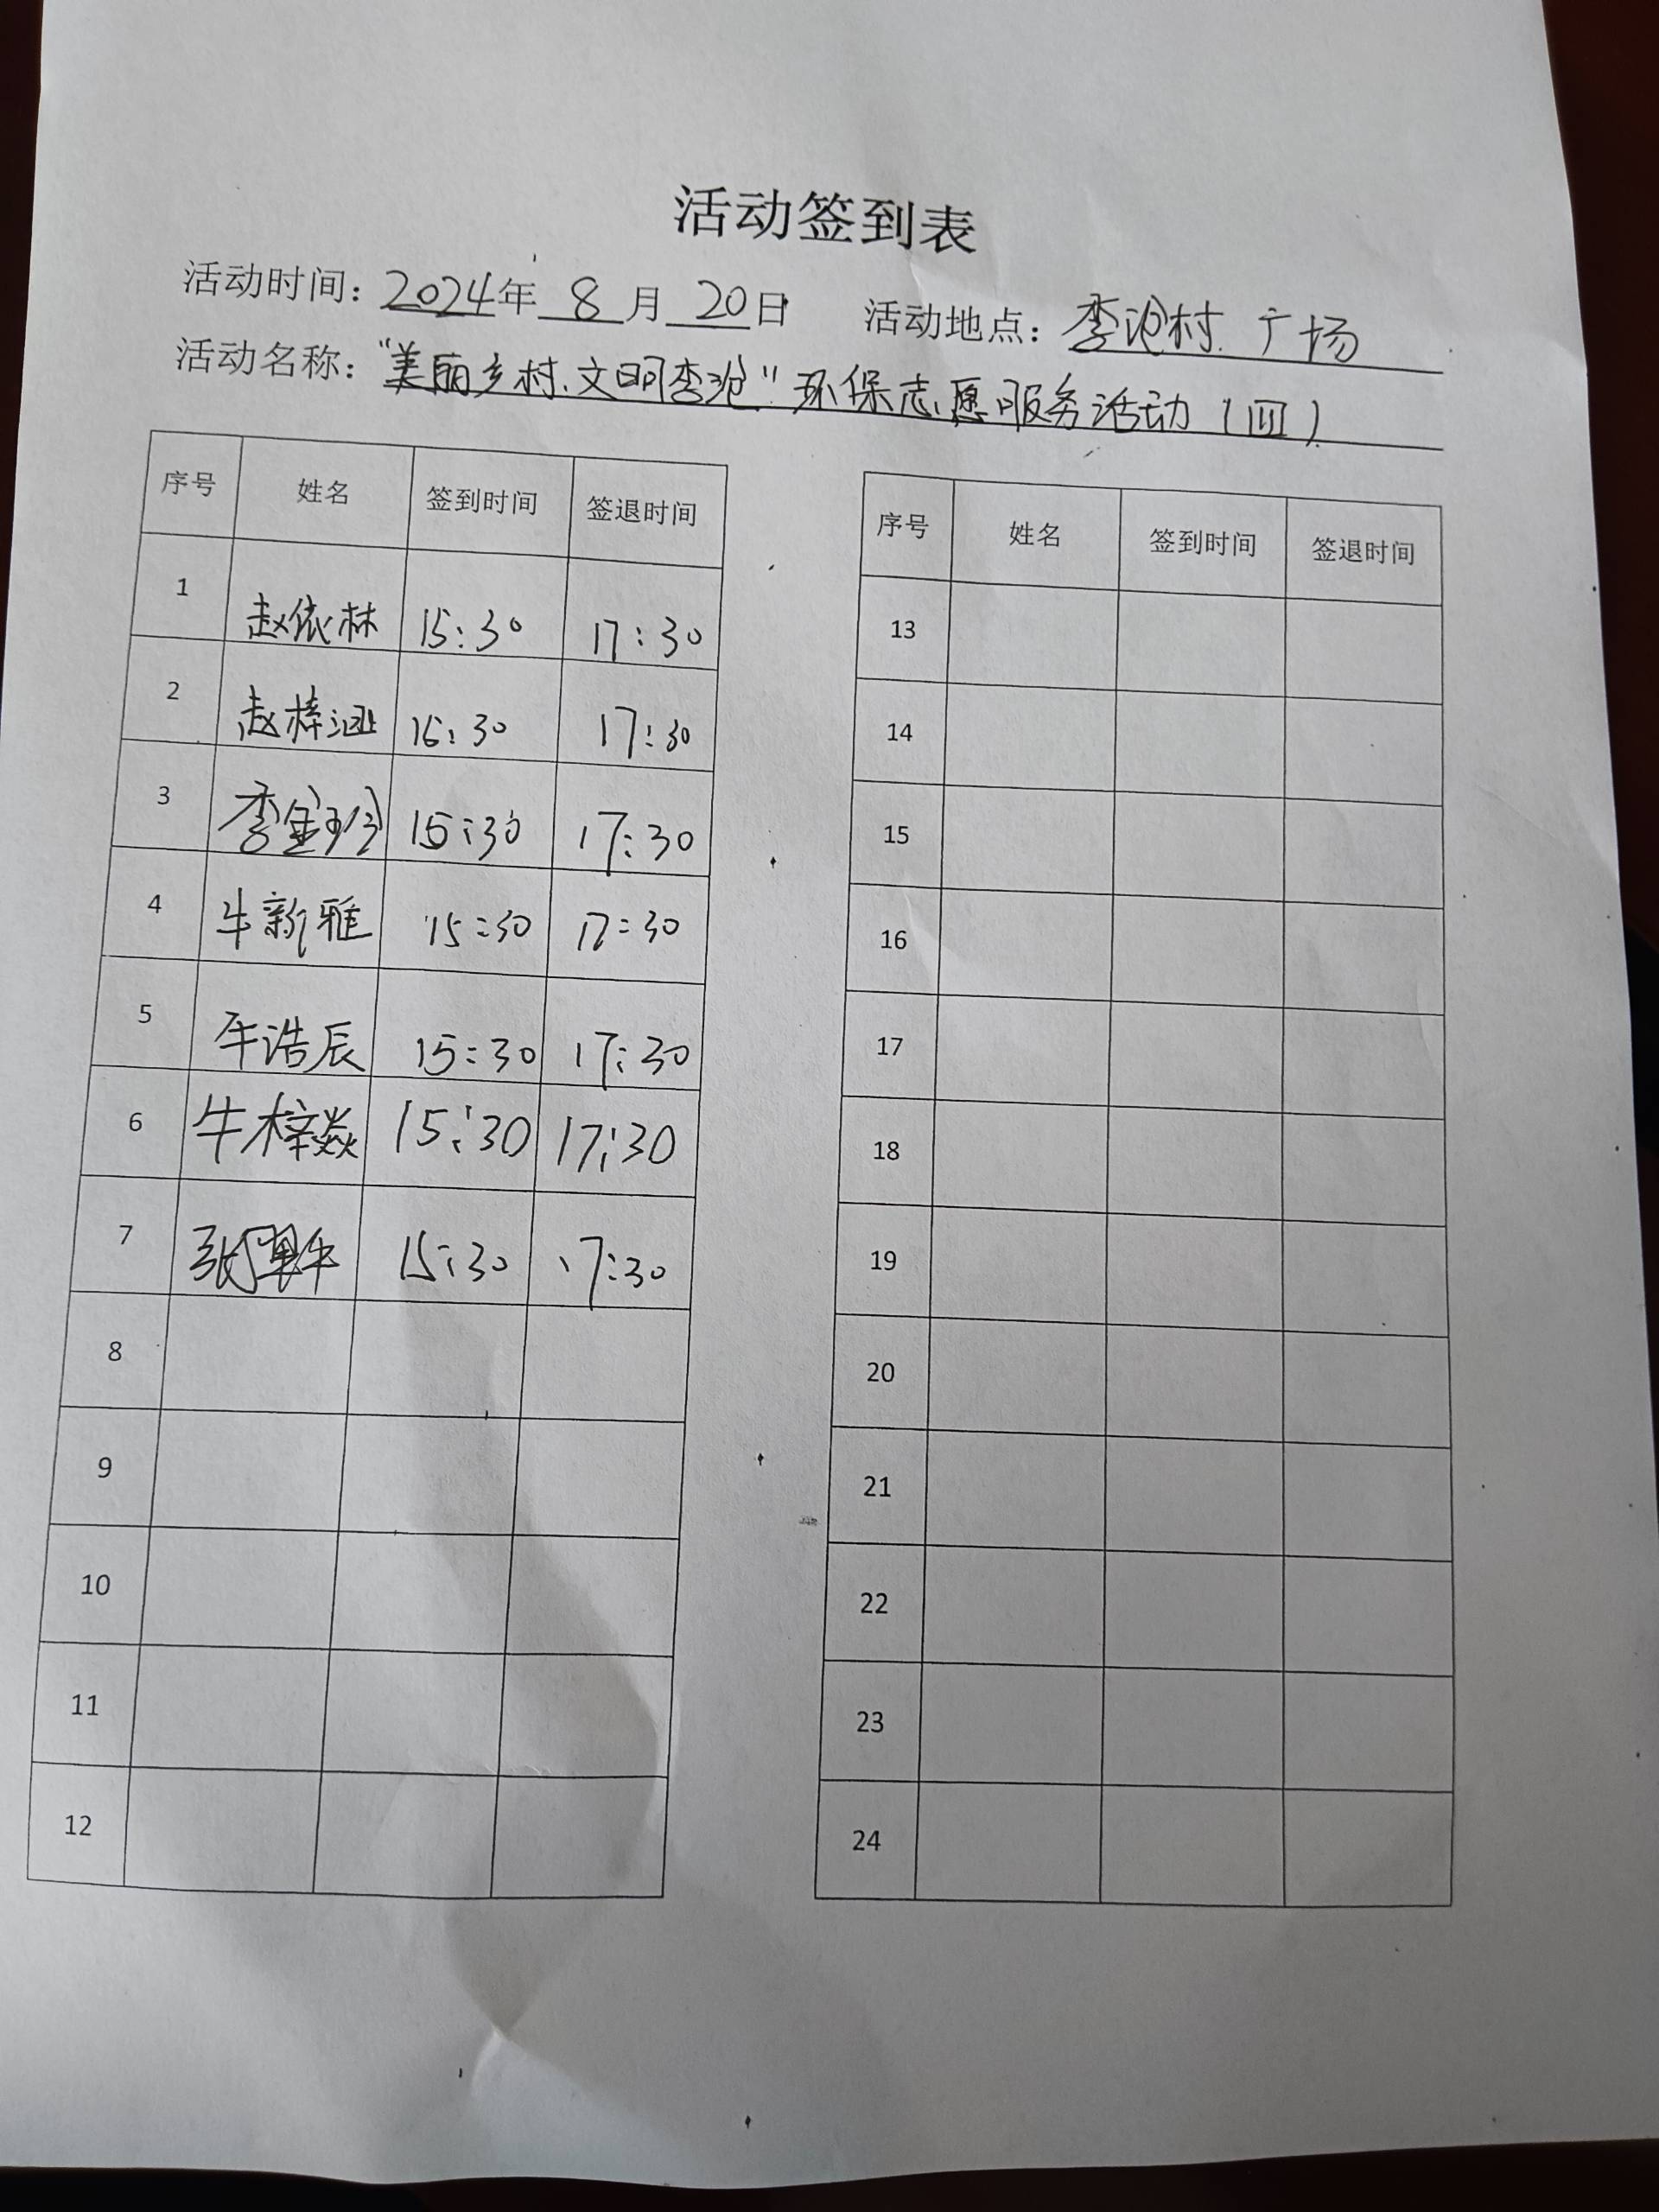 活动签到表
活动时间：2024年 8 月 20日 活动地点：李沧村广场
活动名称："美丽乡村、文明李沧"环保志愿服务活动（四）
序号 姓名 签到时间 签退时间
1 赵依林 15:30 17:30
2 赵梓涵 15:30 17:30
3 李金珍 15:30 17:30
4 牛新雅 15:30 17:30
5 牛浩辰 15:30 17:30
6 牛梓焱 15:30 17:30
7 张 15:30 17:30
8
9
10
11
12
序号 姓名 签到时间 签退时间
13
14
15
16
17
18
19
20
21
22
23
24